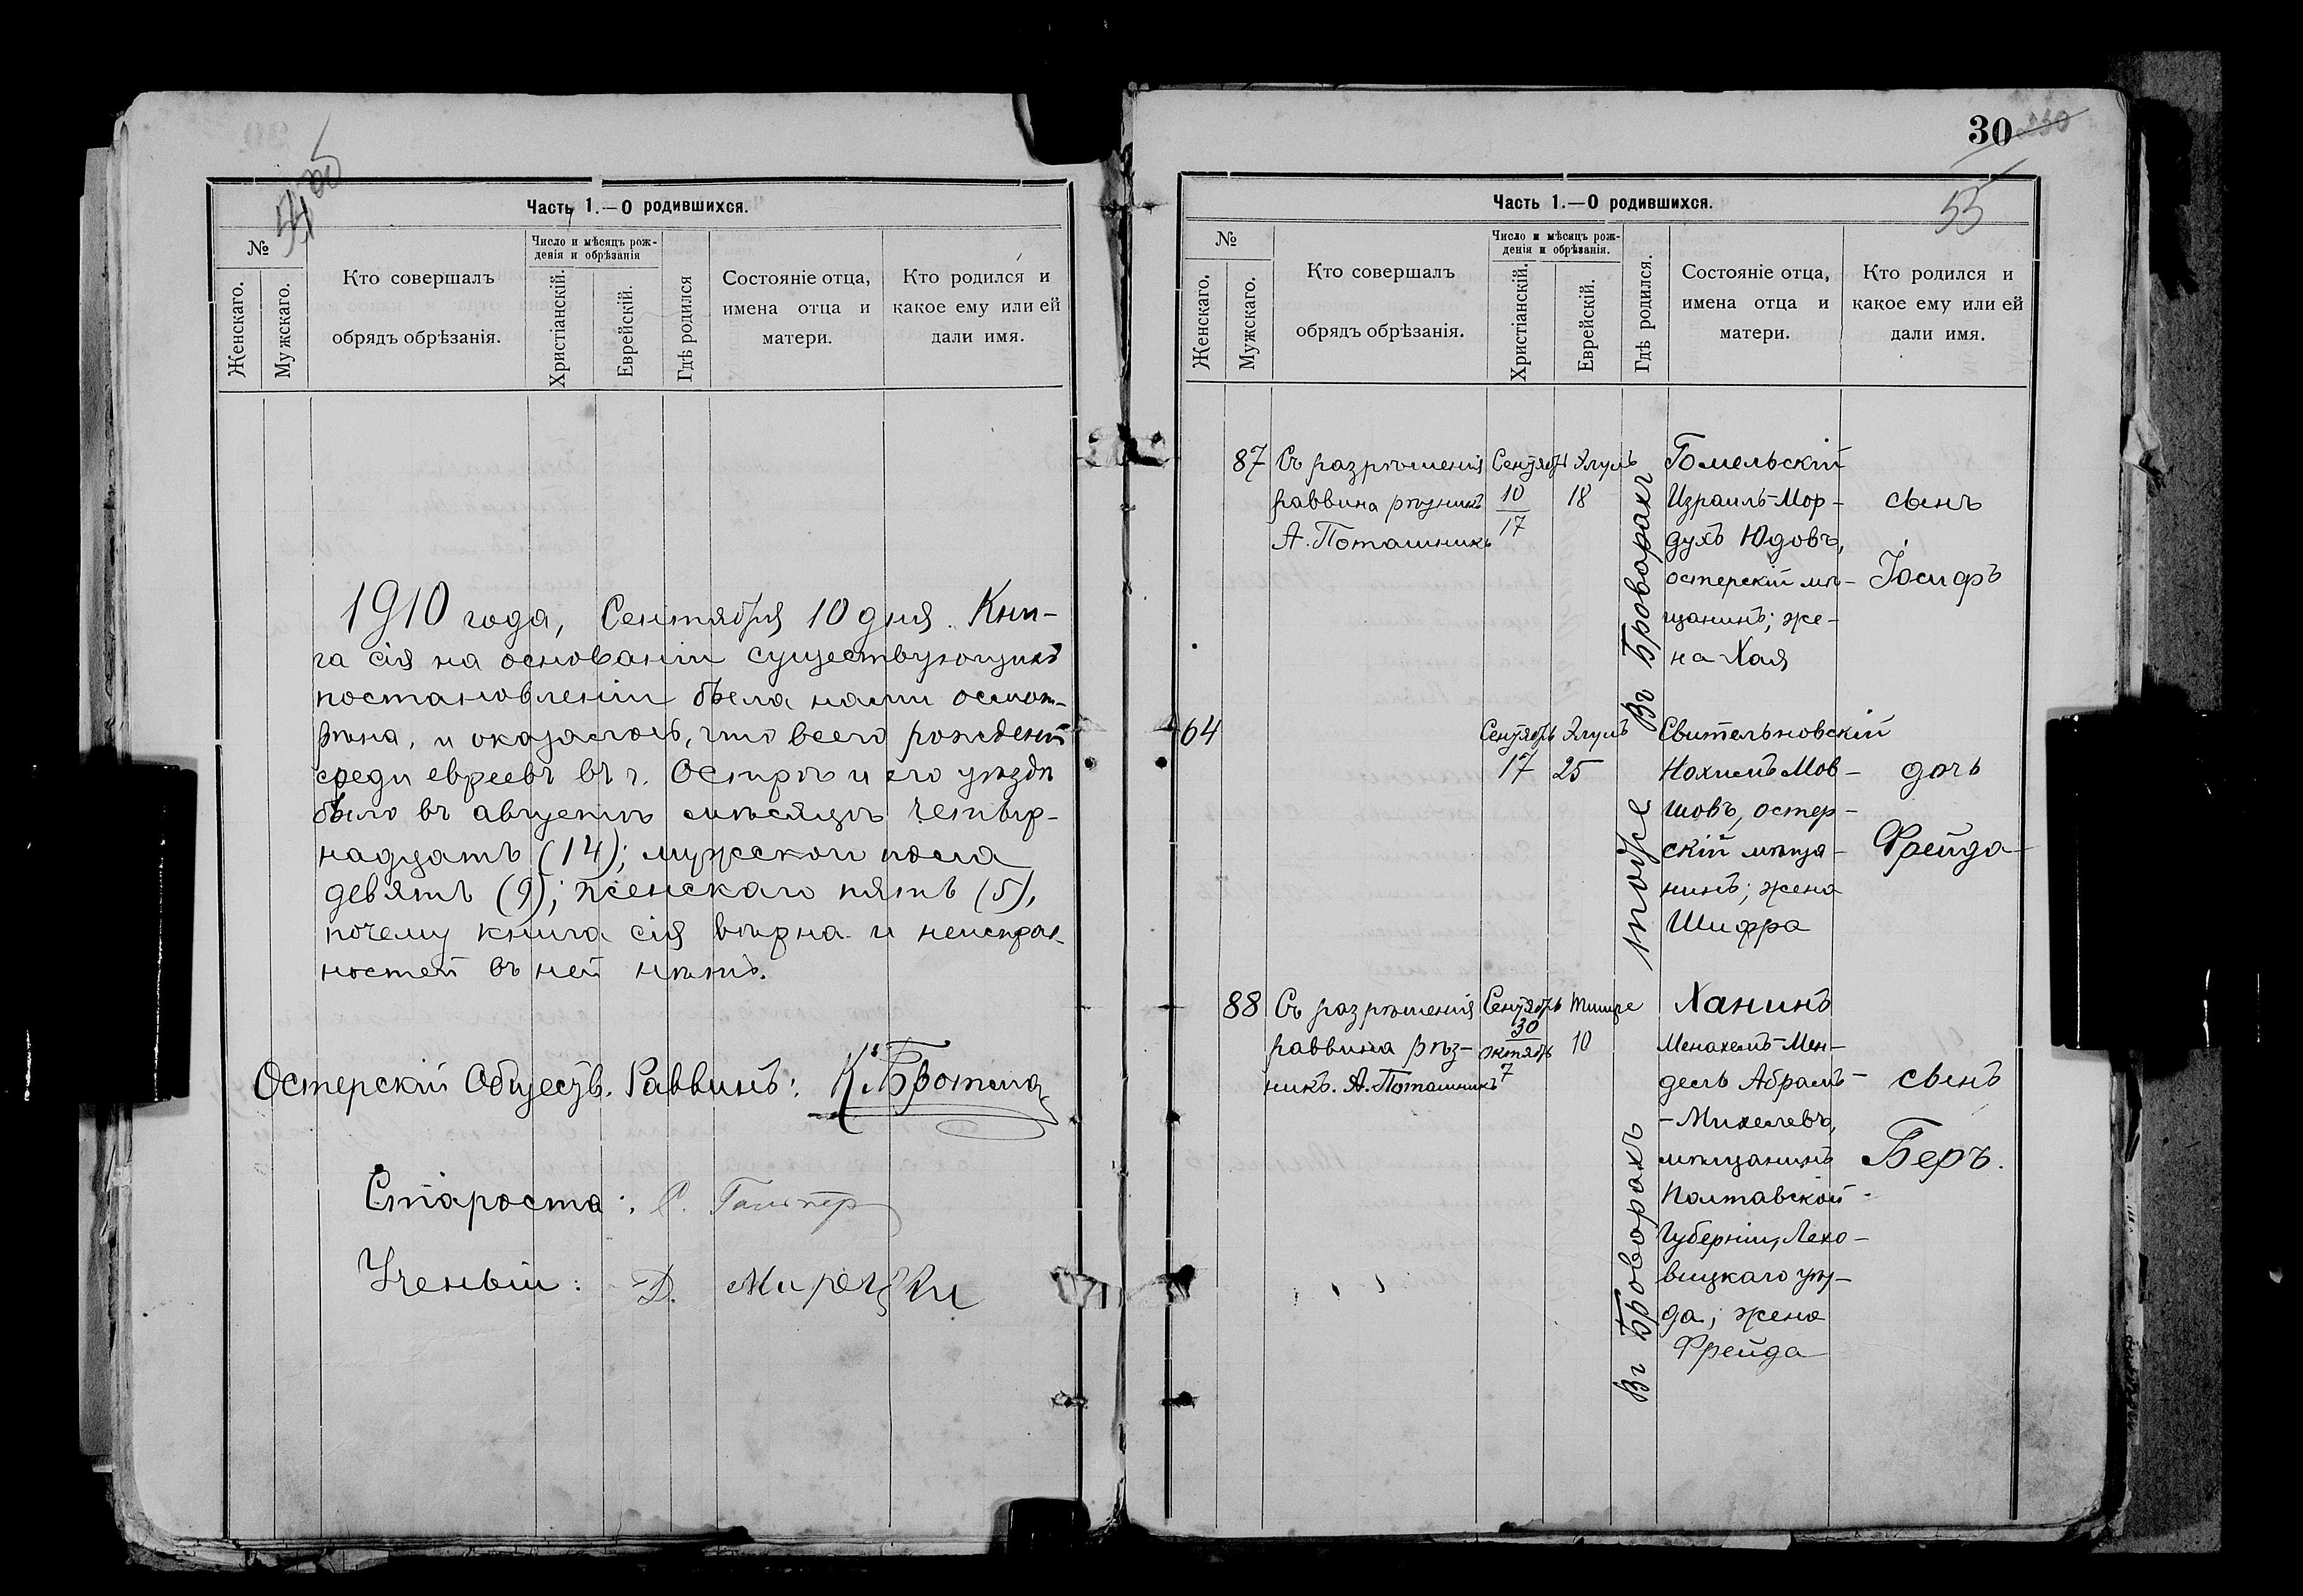 Часть 1.—О родившихся.
№
Женскаго.
Мужскаго.
Кто совершалъ
обрядъ обрѣзанія.
Число и мѣсяцъ рож-
денія и обрѣзанія
Христіанскій.
Еврейскій.
Гдѣ родился
Состояніе отца,
имена отца и
матери.
Кто родился и
какое ему или ей
дали имя.
1910 года, Сентября 10 дня. Кни-
га сія на основаніи существующихъ
постановленій была нами осмот-
рѣна, и оказалось, что всего рожденій
среди евреевъ въ г. Острѣ и его уѣздѣ
было въ августѣ мѣсяцѣ четыр-
надцать (14); мужскаго пола
девять (9); женскаго пять (5),
почему книга сія вѣрна и неисправ-
ностей въ ней нѣтъ.
Остерскій Обществ. Раввинъ:
Староста:
Ученый: Д.
30
55
Часть 1.—О родившихся.
№
Женскаго.
Мужскаго.
Кто совершалъ
обрядъ обрѣзанія.
Число и мѣсяцъ рож-
денія и обрѣзанія.
Христіанскій.
Еврейскій.
Гдѣ родился.
Состояніе отца,
имена отца и
матери.
Кто родился и
какое ему или ей
дали имя.
87 Съ разрѣшенія Сентябрь Элулъ Гомельскій
раввина рѣзникъ 10 18 Израиль-Мор- сынъ
А. Поташникъ 17 духъ Юдовъ,
остерскій мѣ- Іосифъ
щанинъ; же-
на Хая
Въ Броворахъ
64 Сентябрь Элулъ Свительновскій
17 25 Нохимъ Мов- дочь
шовъ, остер-
скій мѣща- Фрейда
нинъ; жена
Шифра
тоже
88 Съ разрѣшенія Сентябрь Тишре Ханинъ
30
раввина рѣз- октябрь 10 Менахемъ-Мен-
никъ. А. Поташникъ 7 дель Абрамъ- сынъ
-Михелевъ,
мѣщанинъ Беръ.
Полтавской
Губерніи, Лохо-
вицкаго уѣз-
да; жена
Фрейда
Въ Броворахъ